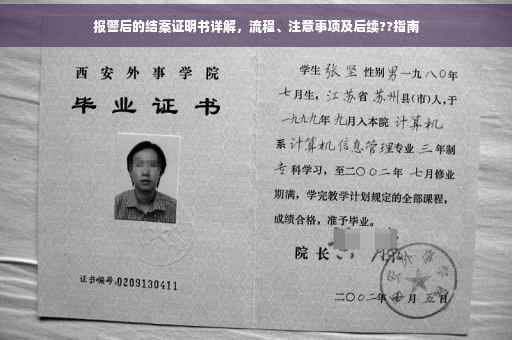 报警后的结案证明书详解，流程、注意事项及后续??指南
西安外事学院
毕业证书
证书编号:0209130411
学生 张坚 性别 男 一九八〇年
七月生，江苏省 苏州 县(市)人，于
一九九九年 九月入本院 计算机
系 计算机信息管理 专业 三 年制
专 科学习，至二〇〇二年 七月修业
期满，学完教学计划规定的全部课程，
成绩合格，准予毕业。
院长
二〇〇二年 月 五 日